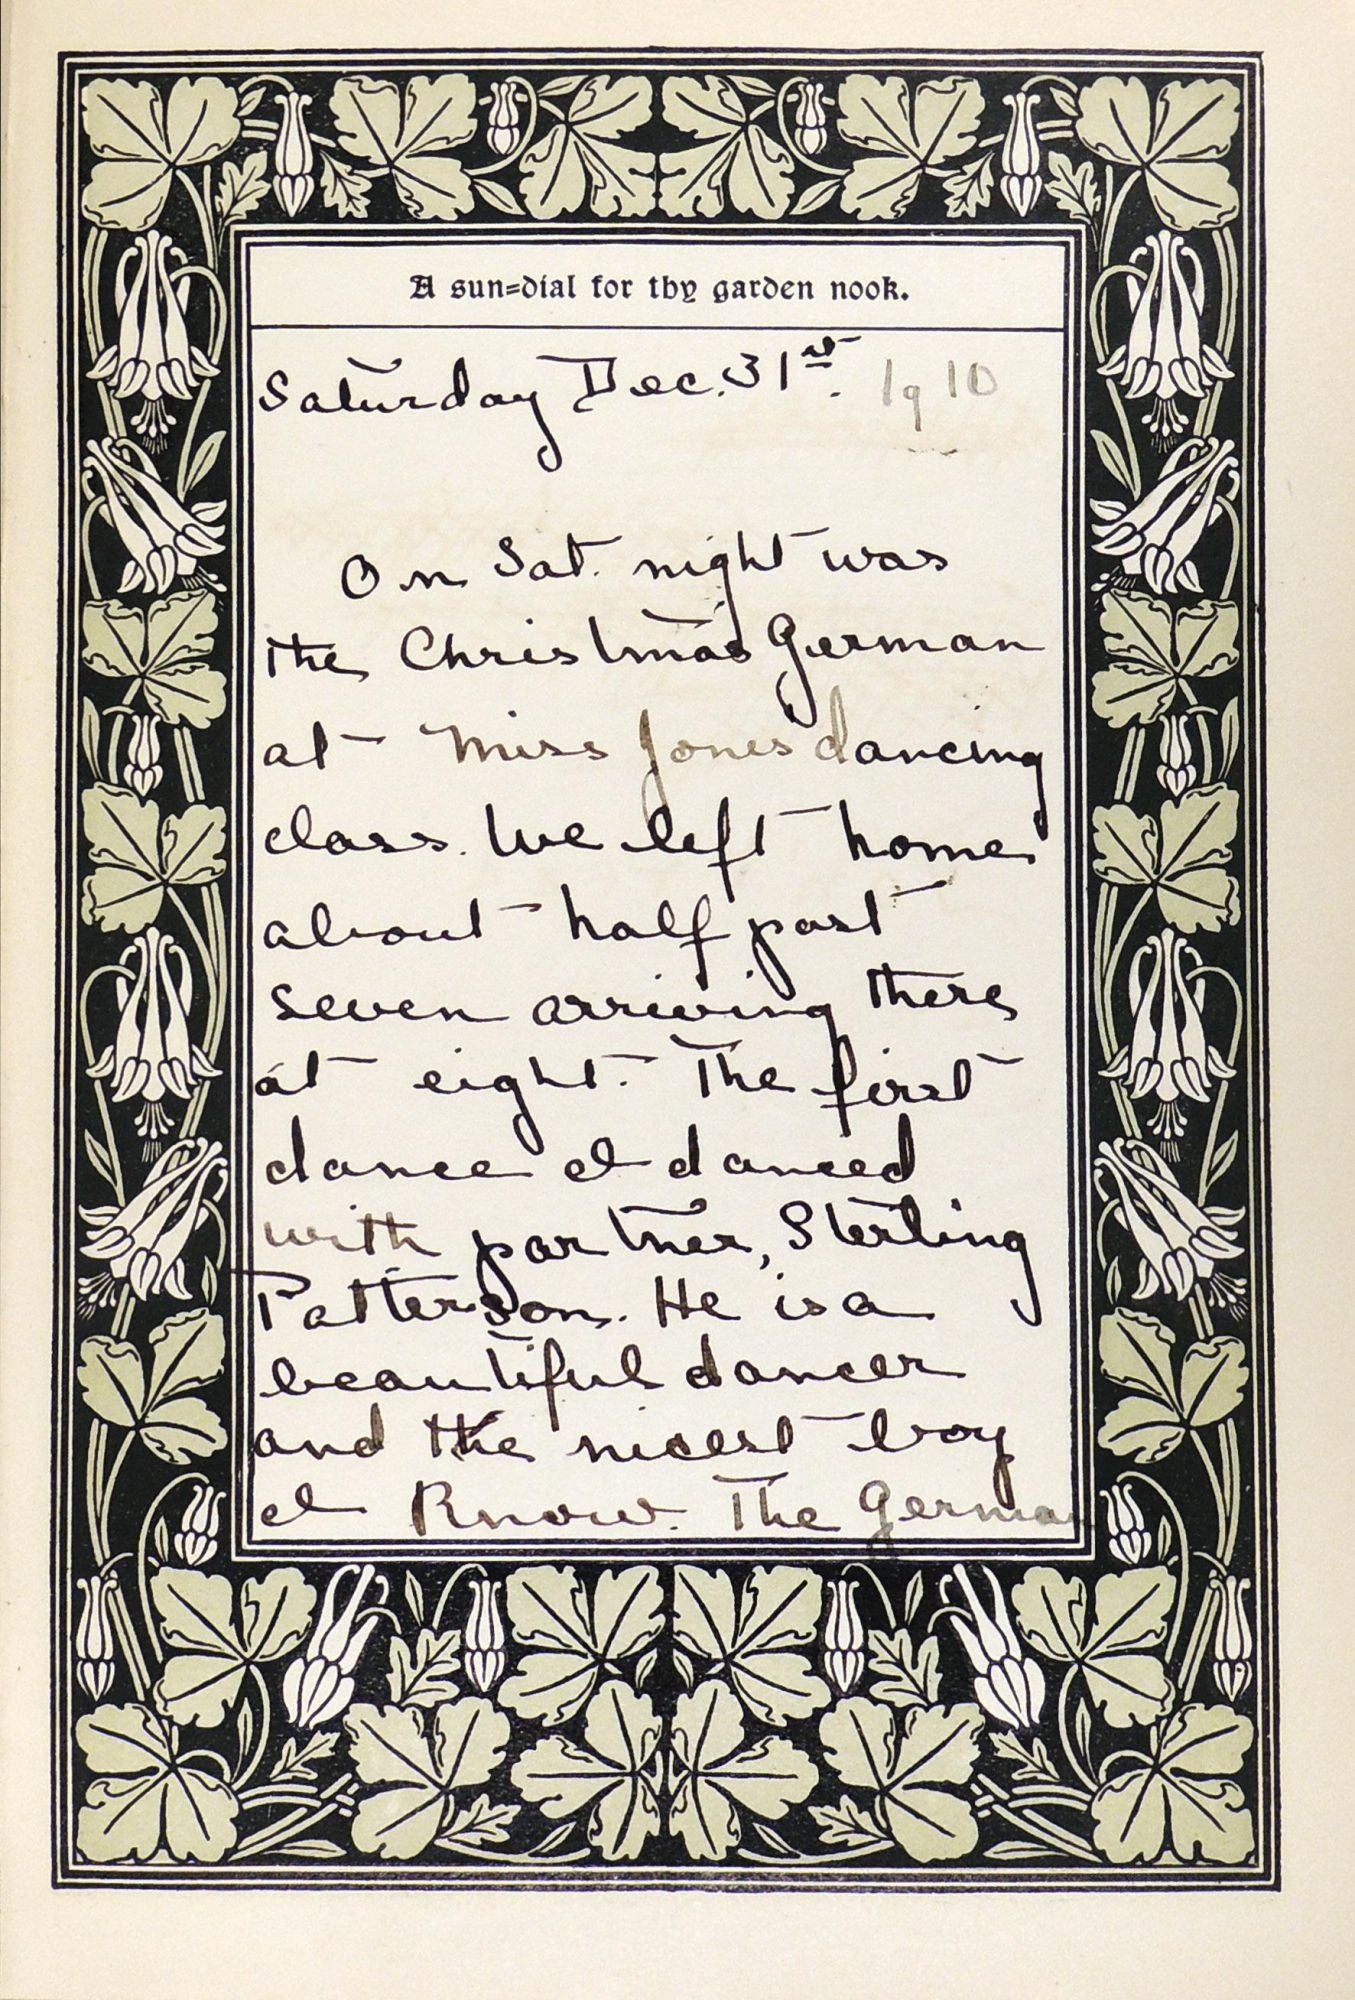 A sun=dial for thy garden nook.
Saturday Dec. 31st. 1910
On Sat. night was
the Christmas German
at Miss Jones dancing
class. We left home
about half past
seven arriving there
at eight. The first
dance I danced
with partner, Sterling
Patterson. He is a
beautiful dancer
and the nicest boy
I know. The German